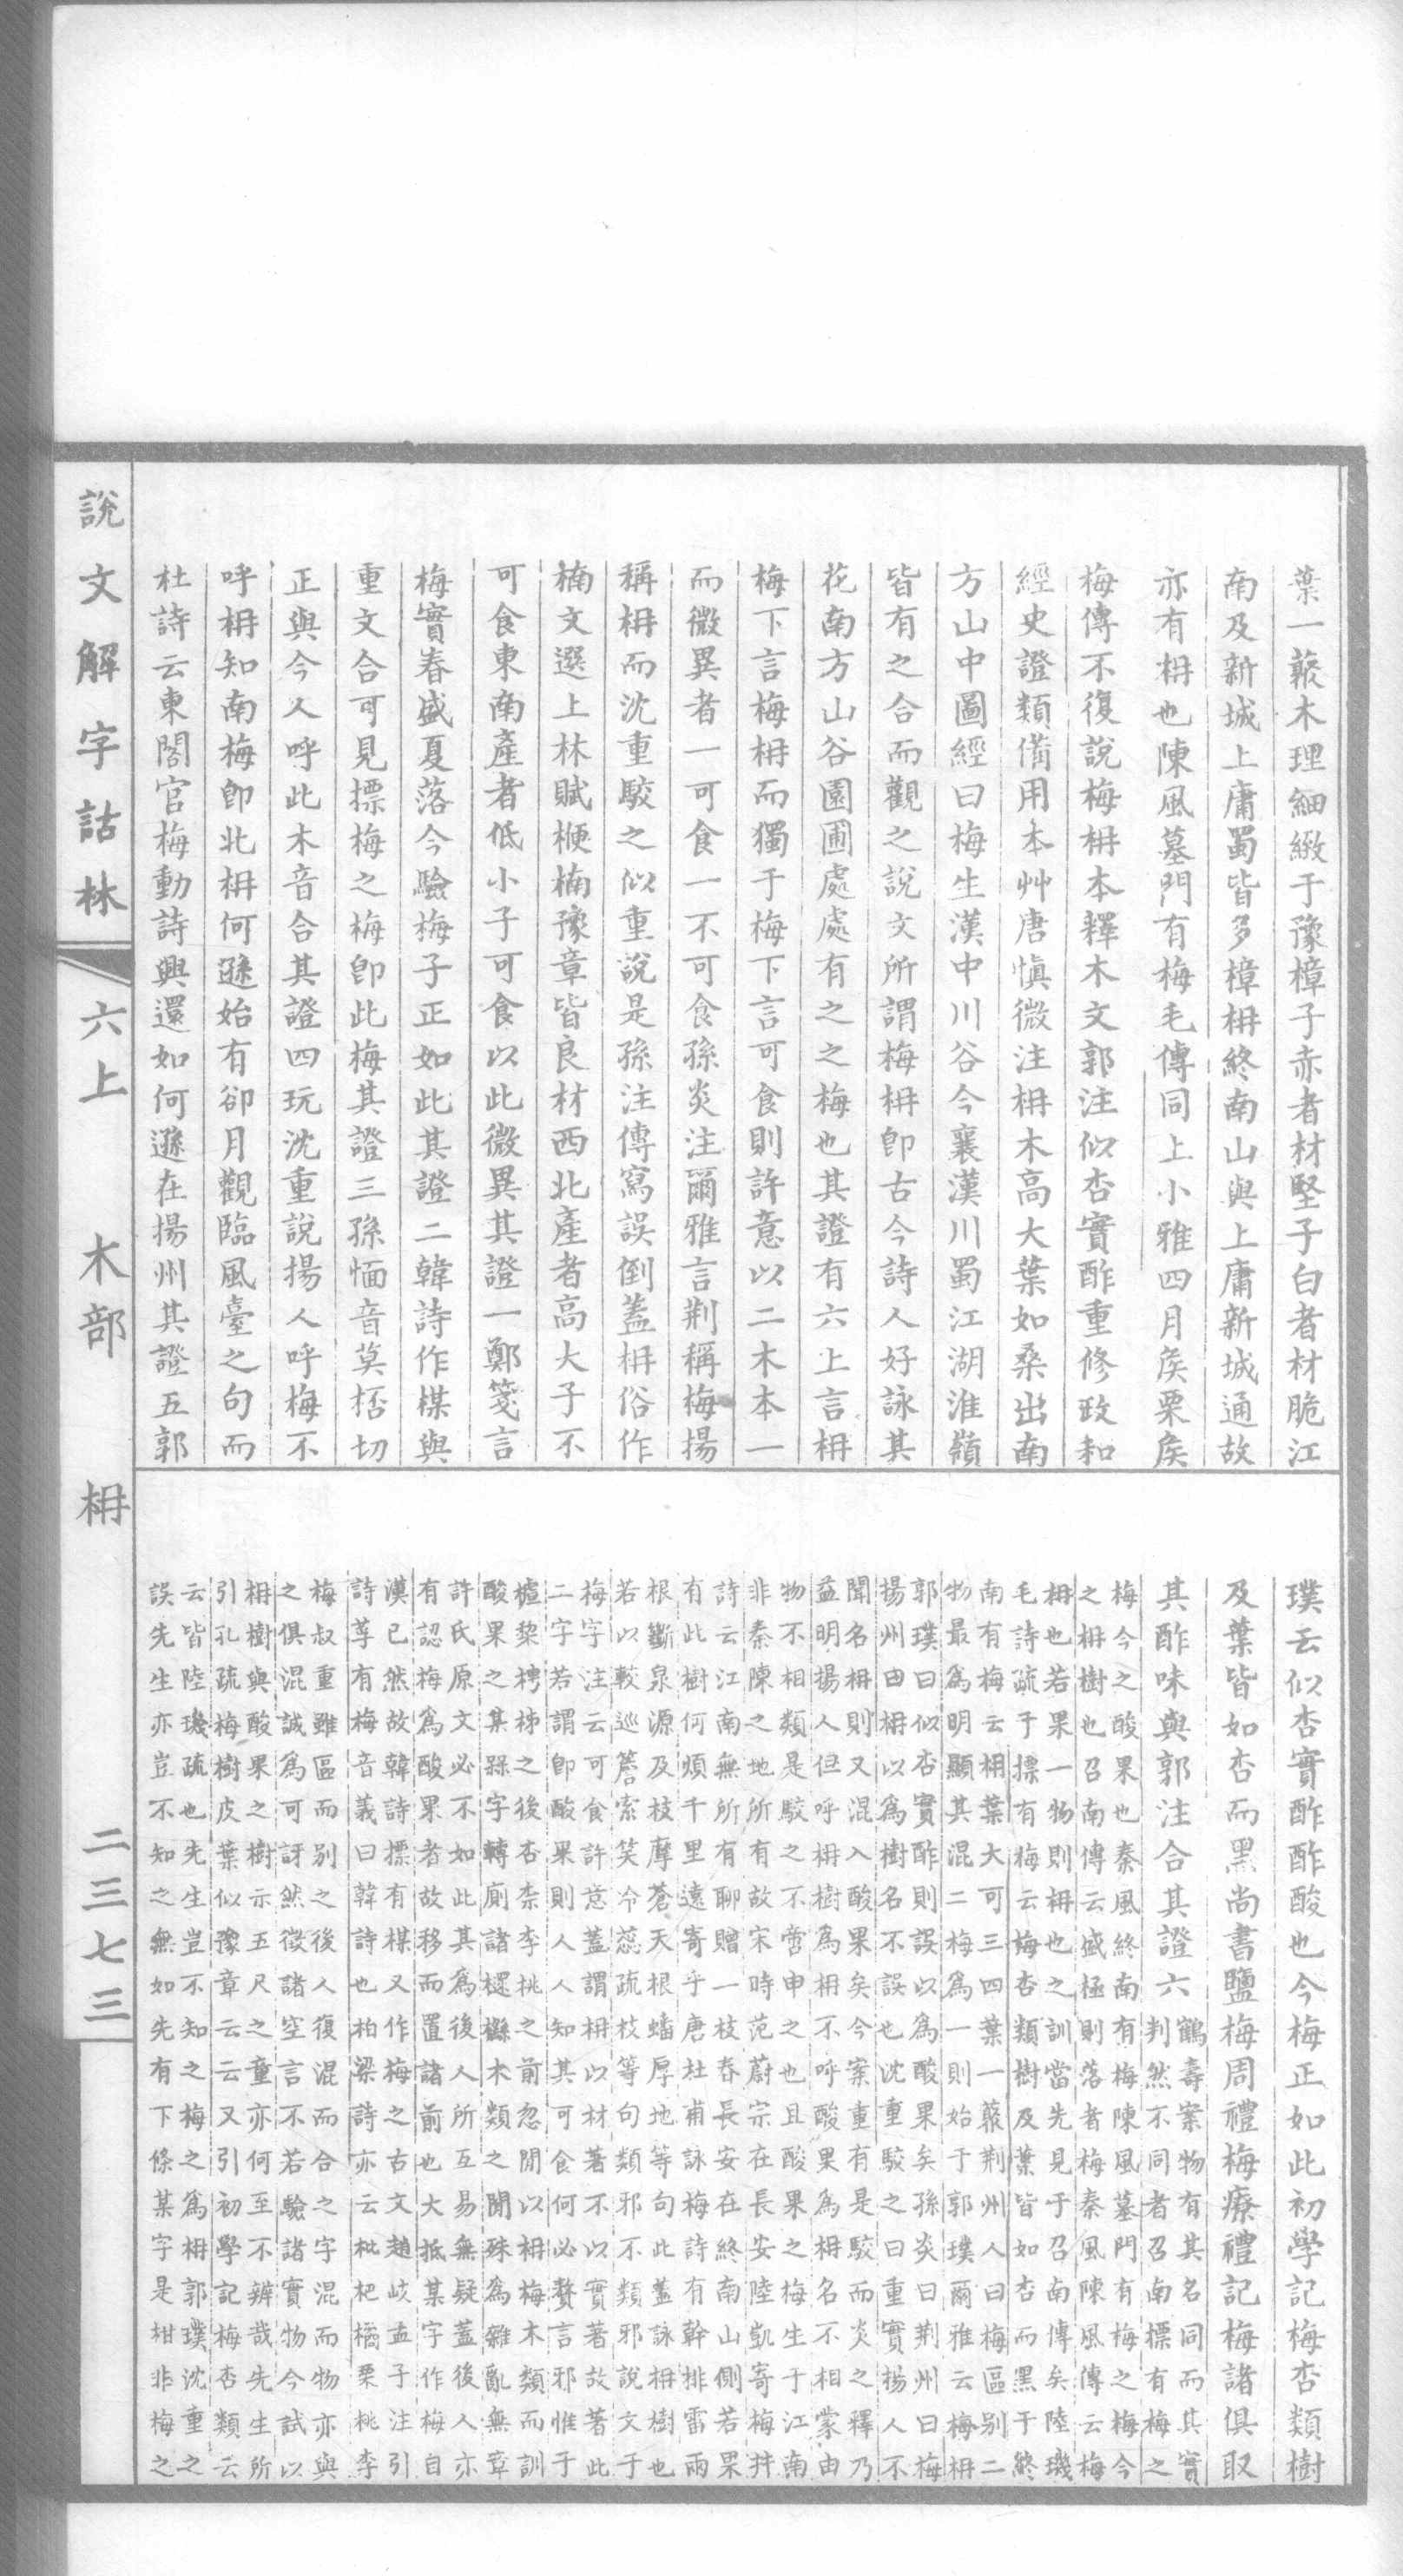 葉一藂木理細緻于豫樟子赤者材堅子白者材脆江
南及新城上庸蜀皆多樟枏終南山與上庸新城通故
亦有枏也陳風墓門有梅毛傳同上小雅四月矦栗矦
梅傳不復說梅枏本釋木文郭注似杏實酢重修政和
經史證類備用本艸唐愼微注枏木高大葉如桑出南
方山中圖經曰梅生漢中川谷今襄漢川蜀江湖淮嶺
皆有之合而觀之說文所謂梅枏卽古今詩人好詠其
花南方山谷園圃處處有之之梅也其證有六上言枏
梅下言梅枏而獨于梅下言可食則許意以二木本一
而微異者一可食一不可食孫炎注爾雅言荆稱梅揚
稱枏而沈重駮之似重說是孫注傳寫誤倒蓋枏俗作
楠文選上林賦楩楠豫章皆良材西北產者高大子不
可食東南產者低小子可食以此微異其證一鄭箋言
梅實春盛夏落今驗梅子正如此其證二韓詩作楳與
重文合可見摽梅之梅卽此梅其證三孫愐音莫桮切
正與今人呼此木音合其證四玩沈重說揚人呼梅不
呼枏知南梅卽北枏何遜始有卻月觀臨風臺之句而
杜詩云東閣官梅動詩興還如何遜在揚州其證五郭
璞云似杏實酢酢酸也今梅正如此初學記梅杏類樹
及葉皆如杏而黑尚書鹽梅周禮梅療禮記梅諸俱取
其酢味與郭注合其證六
鶴壽案物有其名同而其實
判然不同者召南摽有梅之
梅今之酸果也秦風終南有梅陳風墓門有梅之梅今
之枏樹也召南傳云盛極則落者梅秦風陳風傳云梅
枏也若果一物則枏也之訓當先見于召南傳矣陸璣
毛詩疏于摽有梅云梅杏類樹及葉皆如杏而黑于終
南有梅云枏葉大可三四葉一藂荆州人曰梅區别二
物最爲明顯其混二梅爲一則始于郭璞爾雅云梅枏
郭璞曰似杏實酢則誤以爲酸果矣孫炎曰荆州曰梅
揚州曰枏以爲樹名不誤也沈重駮之曰重實揚人不
聞名枏則又混入酸果矣今案重有是駮而炎之釋乃
益明揚人但呼枏樹爲枏不呼酸果爲枏名不相蒙由
物不相類是駮之不啻申之也且酸果之梅生于江南
非秦陳之地所有故宋時范蔚宗在長安陸凱寄梅幷
詩云江南無所有聊贈一枝春長安在終南山側若果
有此樹何煩千里遠寄乎唐杜甫詠梅詩有幹排雷雨
根斷泉源及枝摩蒼天根蟠厚地等句此蓋詠枏樹也
若以較巡簷索笑冷蕊疏枝等句類邪不類邪說文于
梅字注云可食許意蓋謂枏以材著不以實著故著此
二字若謂卽酸果則人人知其可食何必贅言邪惟于
樝棃梬柹之後杏柰李桃之前忽閒以枏梅木類而訓
酸果之某槑字轉廁諸檖櫾木類之閒殊爲雜亂無章
許氏原文必不如此其爲後人所互易無疑蓋後人亦
有認梅爲酸果者故移而置諸前也大抵某字作梅自
漢已然故韓詩摽有楳又作梅之古文趙岐孟子注引
詩莩有梅音義曰韓詩也柏梁詩亦云枇杷橘栗桃李
梅叔重雖區而别之後人復混而合之字混而物亦與
之俱混誠爲可訝然徵諸空言不若驗諸實物今試以
枏樹與酸果之樹示五尺之童亦何至不辨哉先生所
引孔疏梅樹皮葉似豫章云云又引初學記梅杏類云
云皆陸璣疏也先生豈不知之梅之爲枏郭璞沈重之
誤先生亦豈不知之無如先有下條某字是柑非梅之
說文解字詁林 六上 木部 枏 二三七三